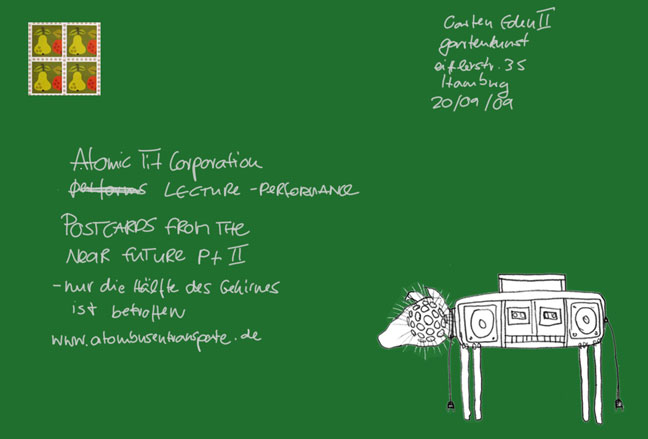 Garten Eden II
gartenkunst
eiflerstr. 35
Hamburg
20/09/09
Atomic Tit Corporation
performs LECTURE-PERFORMANCE
POSTCARDS FROM THE
NEAR FUTURE Pt II
- nur die Hälfte des Gehirnes
ist betroffen
www.atombusentransporte.de